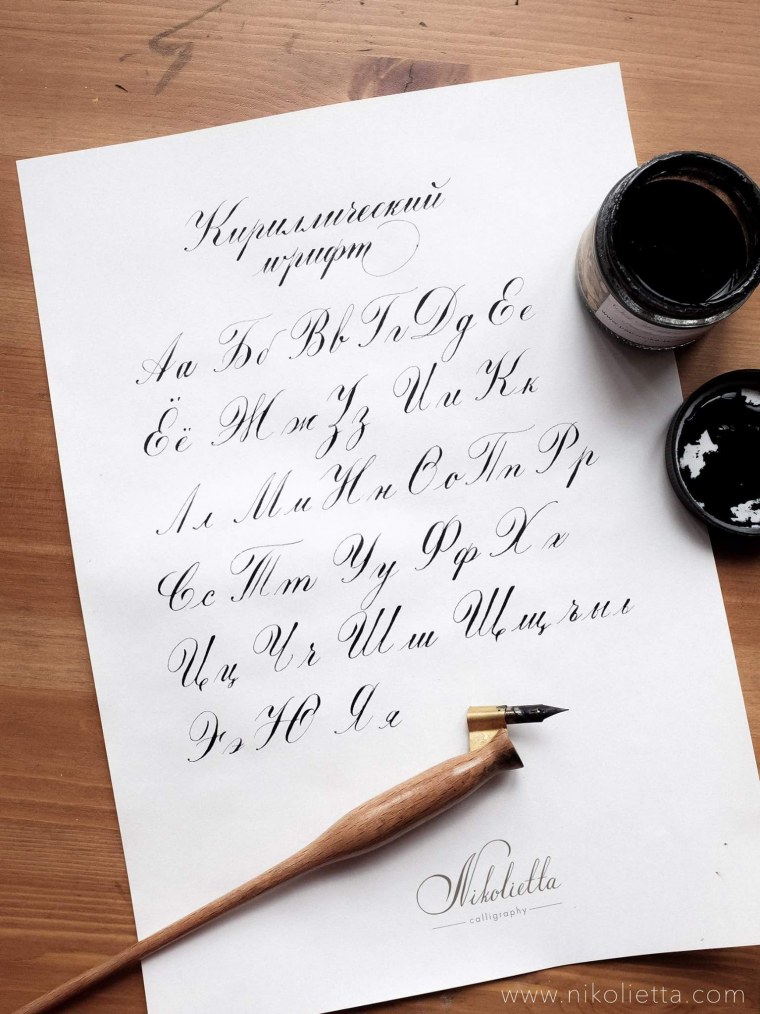 Кириллический
шрифт
Аа Бб Вв Гг Дд Ее
Ёё Жж Зз Ии Кк
Лл Мм Нн Оо Пп Рр
Сс Тт Уу Фф Хх
Цц Чч Шш Щщ ъ ы ь
Ээ Ю Яя
Nikolietta
calligraphy
www.nikolietta.com